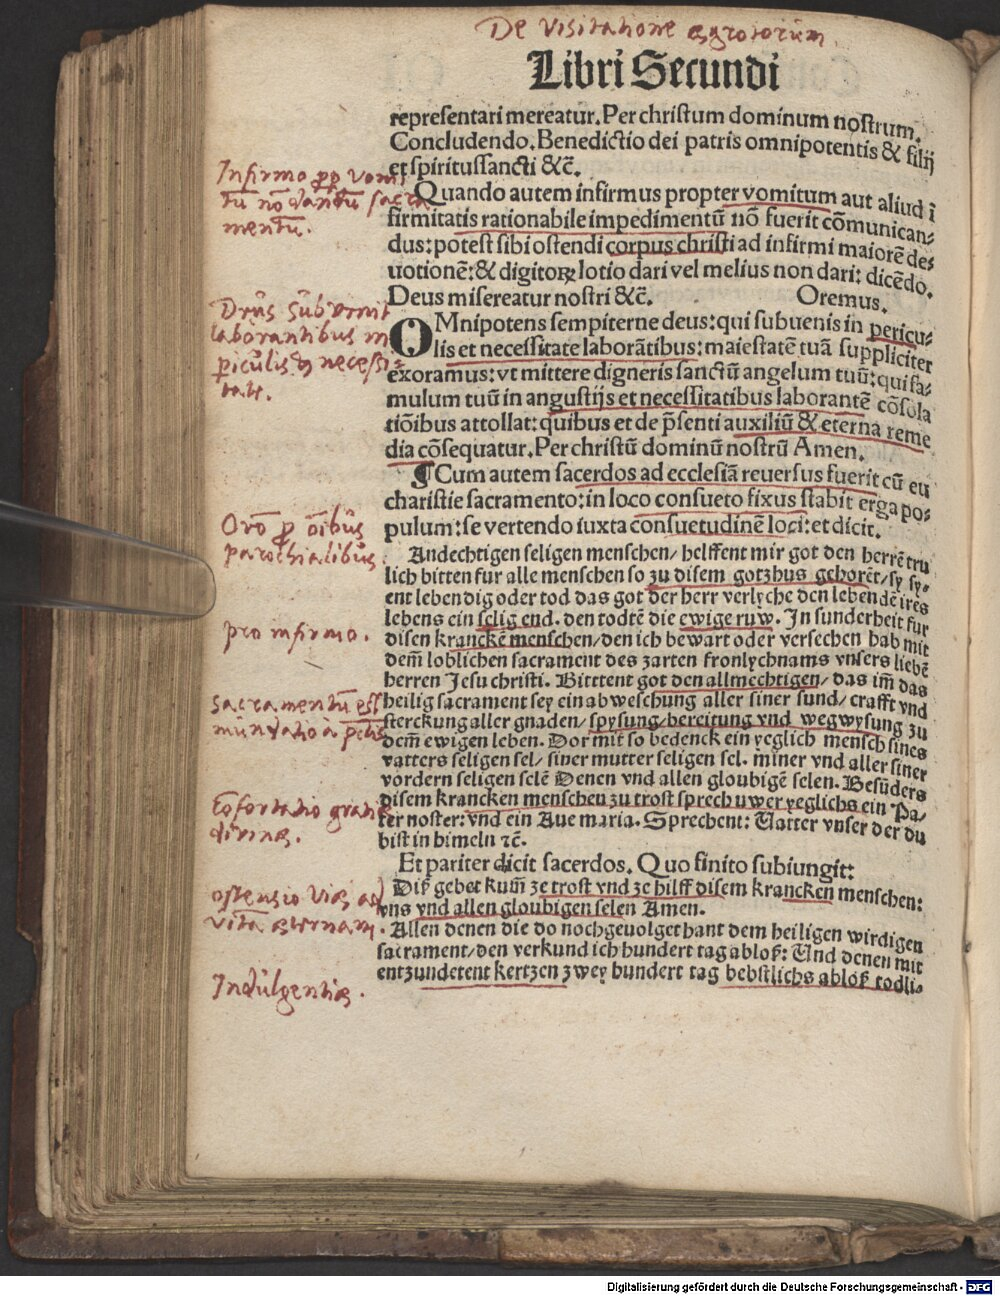 De Visitatione ęgrotorum
Libri Secundi
representari mereatur. Per christum dominum nostrum.
Concludendo. Benedictio dei patris omnipotentis & filij
et spiritussancti &c̄.
Infirmo ꝓp vomi
tū nō dantū sacra
mentū.
Quando autem infirmus propter vomitum aut aliud ī
firmitatis rationabile impedimentū nō fuerit cōmunican⸗
dus: potest sibi ostendi corpus christi ad infirmi maiorē de⸗
uotionē: & digitoꝝ lotio dari vel melius non dari: dicēdo.
Deus misereatur nostri &c̄. Oremus.
Dn̄s subvenit
laborantibus in
ꝑiculis & necessi
tate.
OMnipotens sempiterne deus: qui subuenis in pericu⸗
lis et necessitate laborātibus: maiestatē tuā suppliciter
exoramus: vt mittere digneris sanctū angelum tuū: qui fa⸗
mulum tuū in angustijs et necessitatibus laborantē cōsola
tiōibus attollat: quibus et de p̄senti auxiliū & eterna reme
dia cōsequatur. Per christū dominū nostrū Amen.
¶ Cum autem sacerdos ad ecclesiā reuersus fuerit cū eu
charistie sacramento: in loco consueto fixus stabit erga po⸗
pulum: se vertendo iuxta consuetudinē loci: et dicit.
Orō ꝓ oībus
parochialibus.
Andechtigen seligen menschen/ helffent mir got den herrē tru
lich bitten fur alle menschen so zu disem gotzhus gehorēt/ sy sy⸗
ent lebendig oder tod das got der herr verlyche den lebendē ires
lebens ein selig end. den todtē die ewige ruw. In sunderheit fur
pro infirmo.
disen kranckē menschen/ den ich bewart oder versechen hab mit
dem̄ loblichen sacrament des zarten fronlychnams vnsers liebē
herren Jesu christi. Bitttent got den allmechtigen/ das im̄ das
Sacramentū est
mūndatio a pctis
heilig sacrament sey ein abweschung aller siner sund/ crafft vnd
sterckung aller gnaden/ spysung/ bereitung vnd wegwysung zu
dem̄ ewigen leben. Dor mit so bedenck ein yeglich mensch sines
vatters seligen sel/ siner mutter seligen sel. miner vnd aller siner
vordern seligen selē Denen vnd allen gloubigē selen. Besūders
Cōfortatio gratię
divinę.
disem krancken menschen zu trost sprech uwer yeglichs ein Pa/
ter noster: vnd ein Aue maria. Sprechent: Vatter vnser der du
bist in himeln ꝛc̄.
Et pariter dicit sacerdos. Quo finito subiungit:
ostensio vię ad
vitā ęternam.
Diß gebet kum̄ ze trost vnd ze hilff disem krancken menschen:
vns vnd allen gloubigen selen Amen.
Allen denen die do nochgeuolget hant dem heiligen wirdigen
sacrament/ den verkund ich hundert tag abloß: Vnd denen mit
Indulgentię.
entzundetent kertzen zwey hundert tag bebstlichs abloß todli⸗
Digitalisierung gefördert durch die Deutsche Forschungsgemeinschaft - DFG